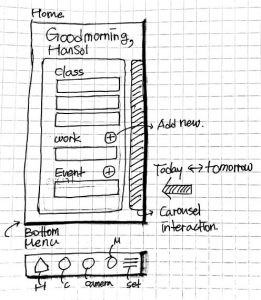 Home
Goodmorning,
Hansol
Class
work
Add new.
Event
Today ↔ tomorrow
Carousel
interaction.
Bottom
Menu
M
H
C
camera
set